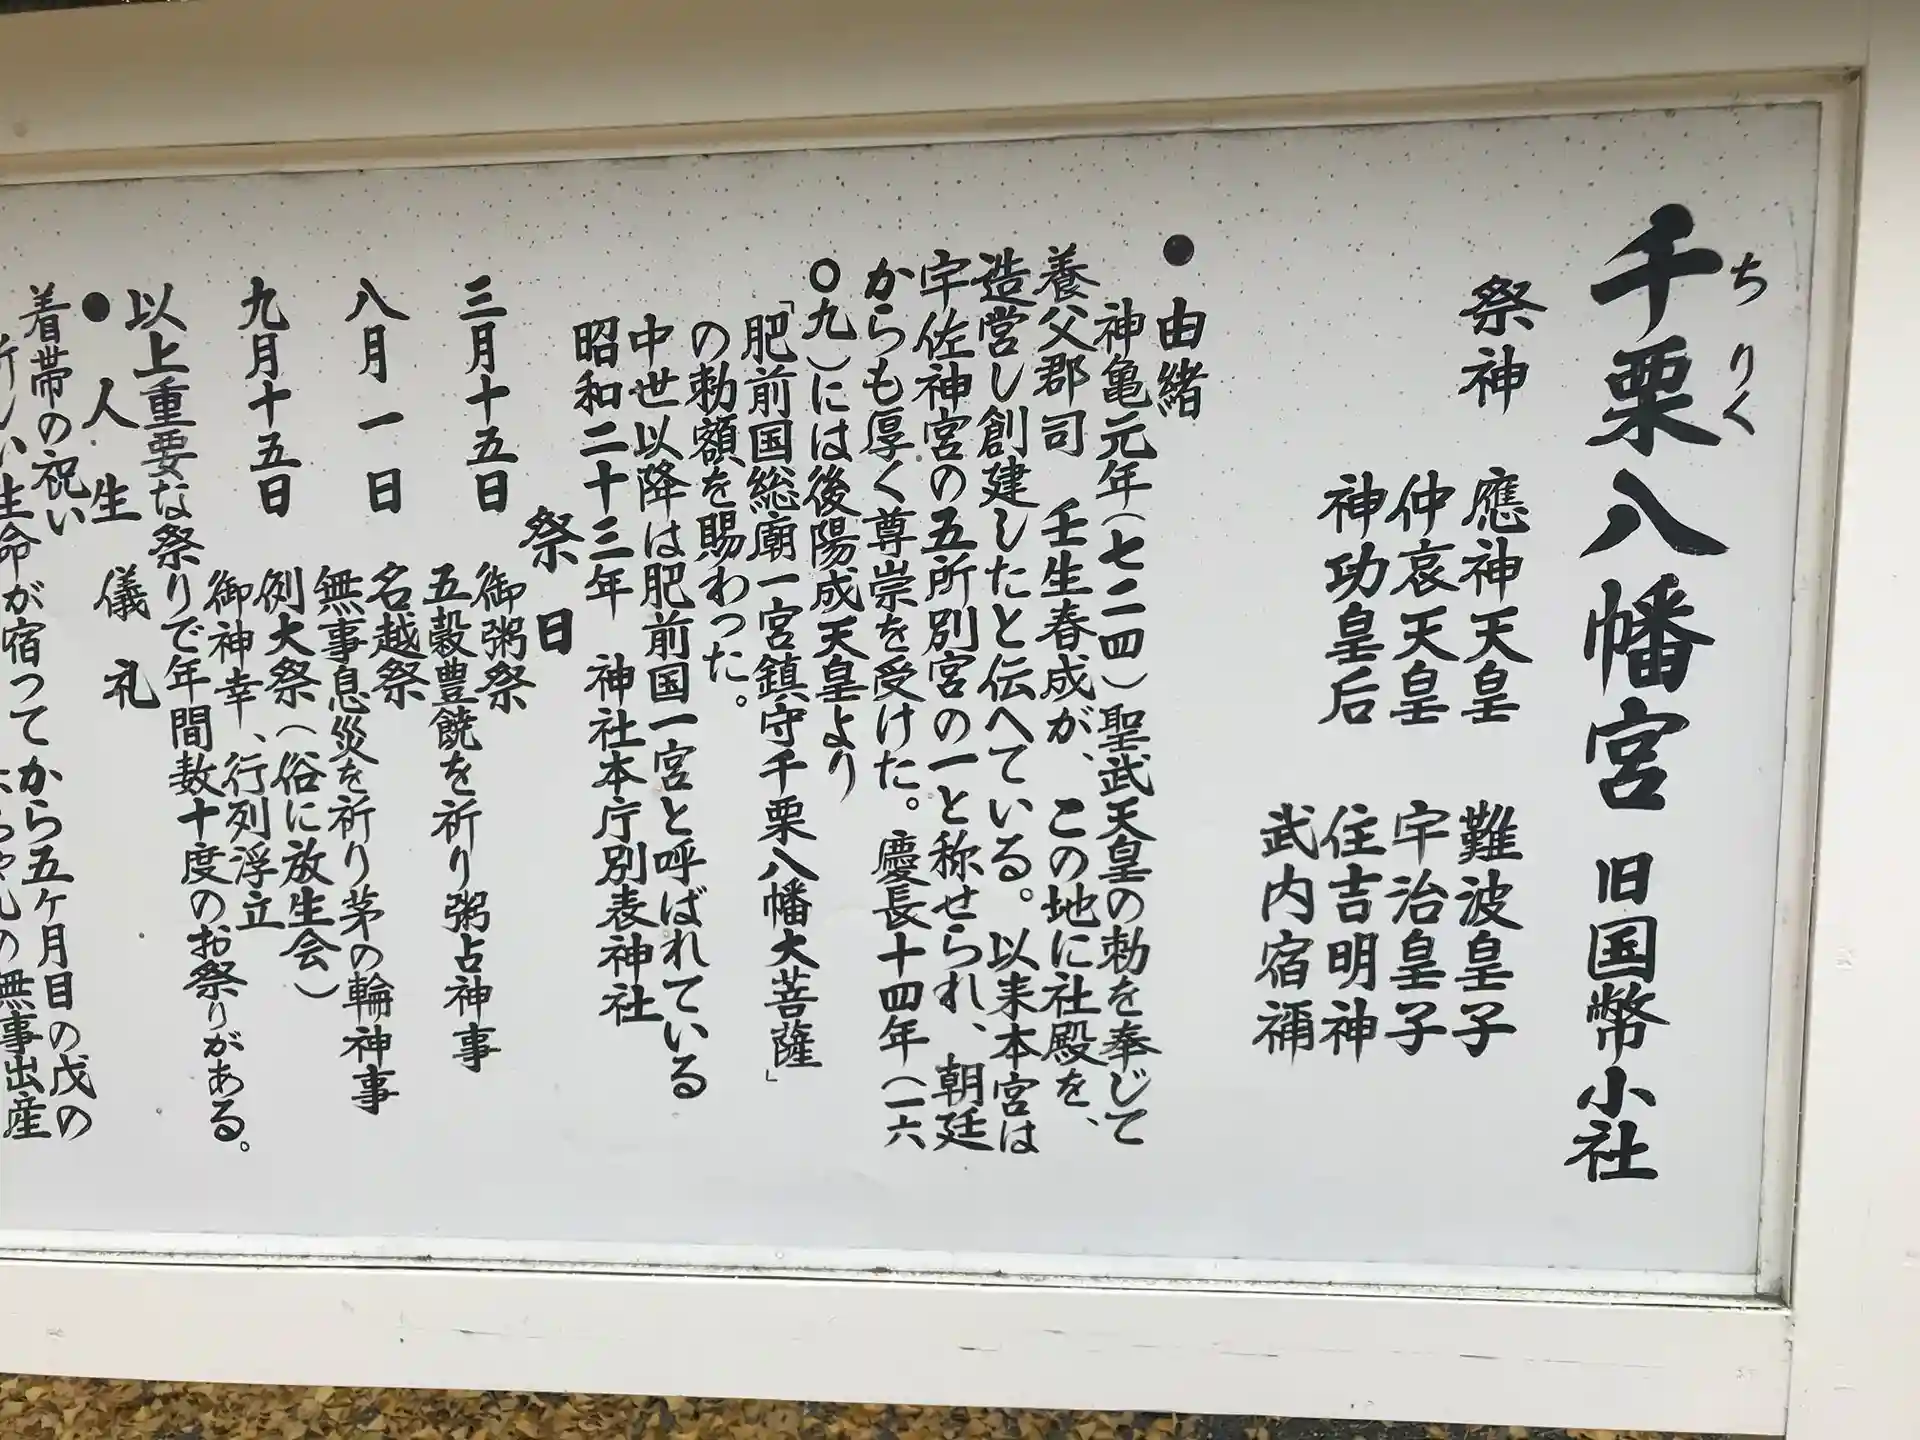 千栗八幡宮 旧国幣小社
ちりく
祭神
應神天皇 難波皇子
仲哀天皇 宇治皇子
神功皇后 住吉明神
武内宿禰
●由緒
神亀元年(七二四)聖武天皇の勅を奉じて
養父郡司 壬生春成が、この地に社殿を、
造営し創建したと伝へている。以来本宮は
宇佐神宮の五所別宮の一と称せられ、朝廷
からも厚く尊崇を受けた。慶長十四年(一六
〇九)には後陽成天皇より
「肥前国総廟一宮鎮守千栗八幡大菩薩」
の勅額を賜わった。
中世以降は肥前国一宮と呼ばれている
昭和二十三年 神社本庁別表神社
祭日
三月十五日 御粥祭
五穀豊饒を祈り粥占神事
八月一日 名越祭
無事息災を祈り茅の輪神事
九月十五日 例大祭(俗に放生会)
御神幸、行列浮立
以上重要な祭りで年間数十度のお祭りがある。
●人生儀礼
着帯の祝い
が宿ってから五ヶ月目の戌の
の無事出産